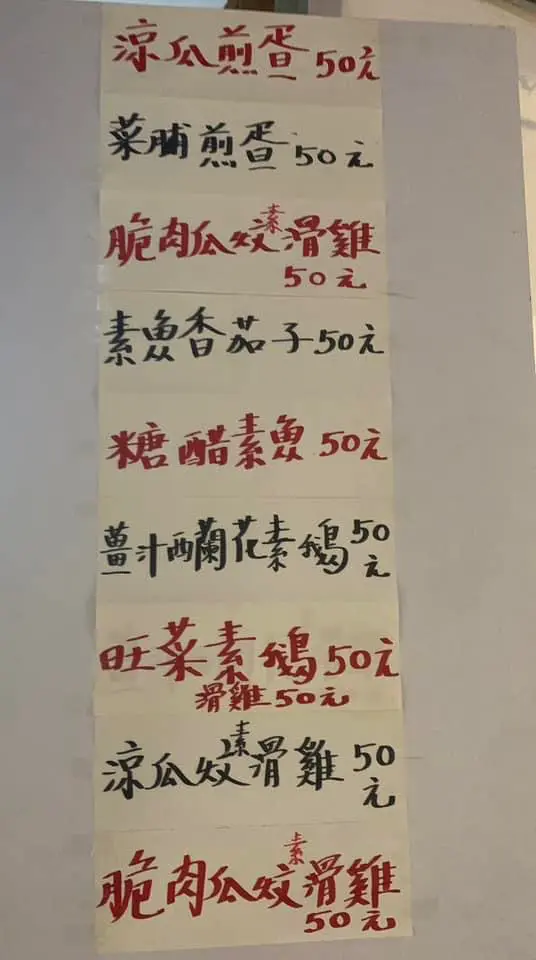 涼瓜煎蛋 50元
菜脯煎蛋 50元
脆肉瓜炆素滑雞
50元
素魚香茄子 50元
糖醋素魚 50元
薑汁西蘭花素鵝 50元
旺菜素鵝 50元
滑雞 50元
涼瓜炆素滑雞 50元
脆肉瓜炆素滑雞
50元